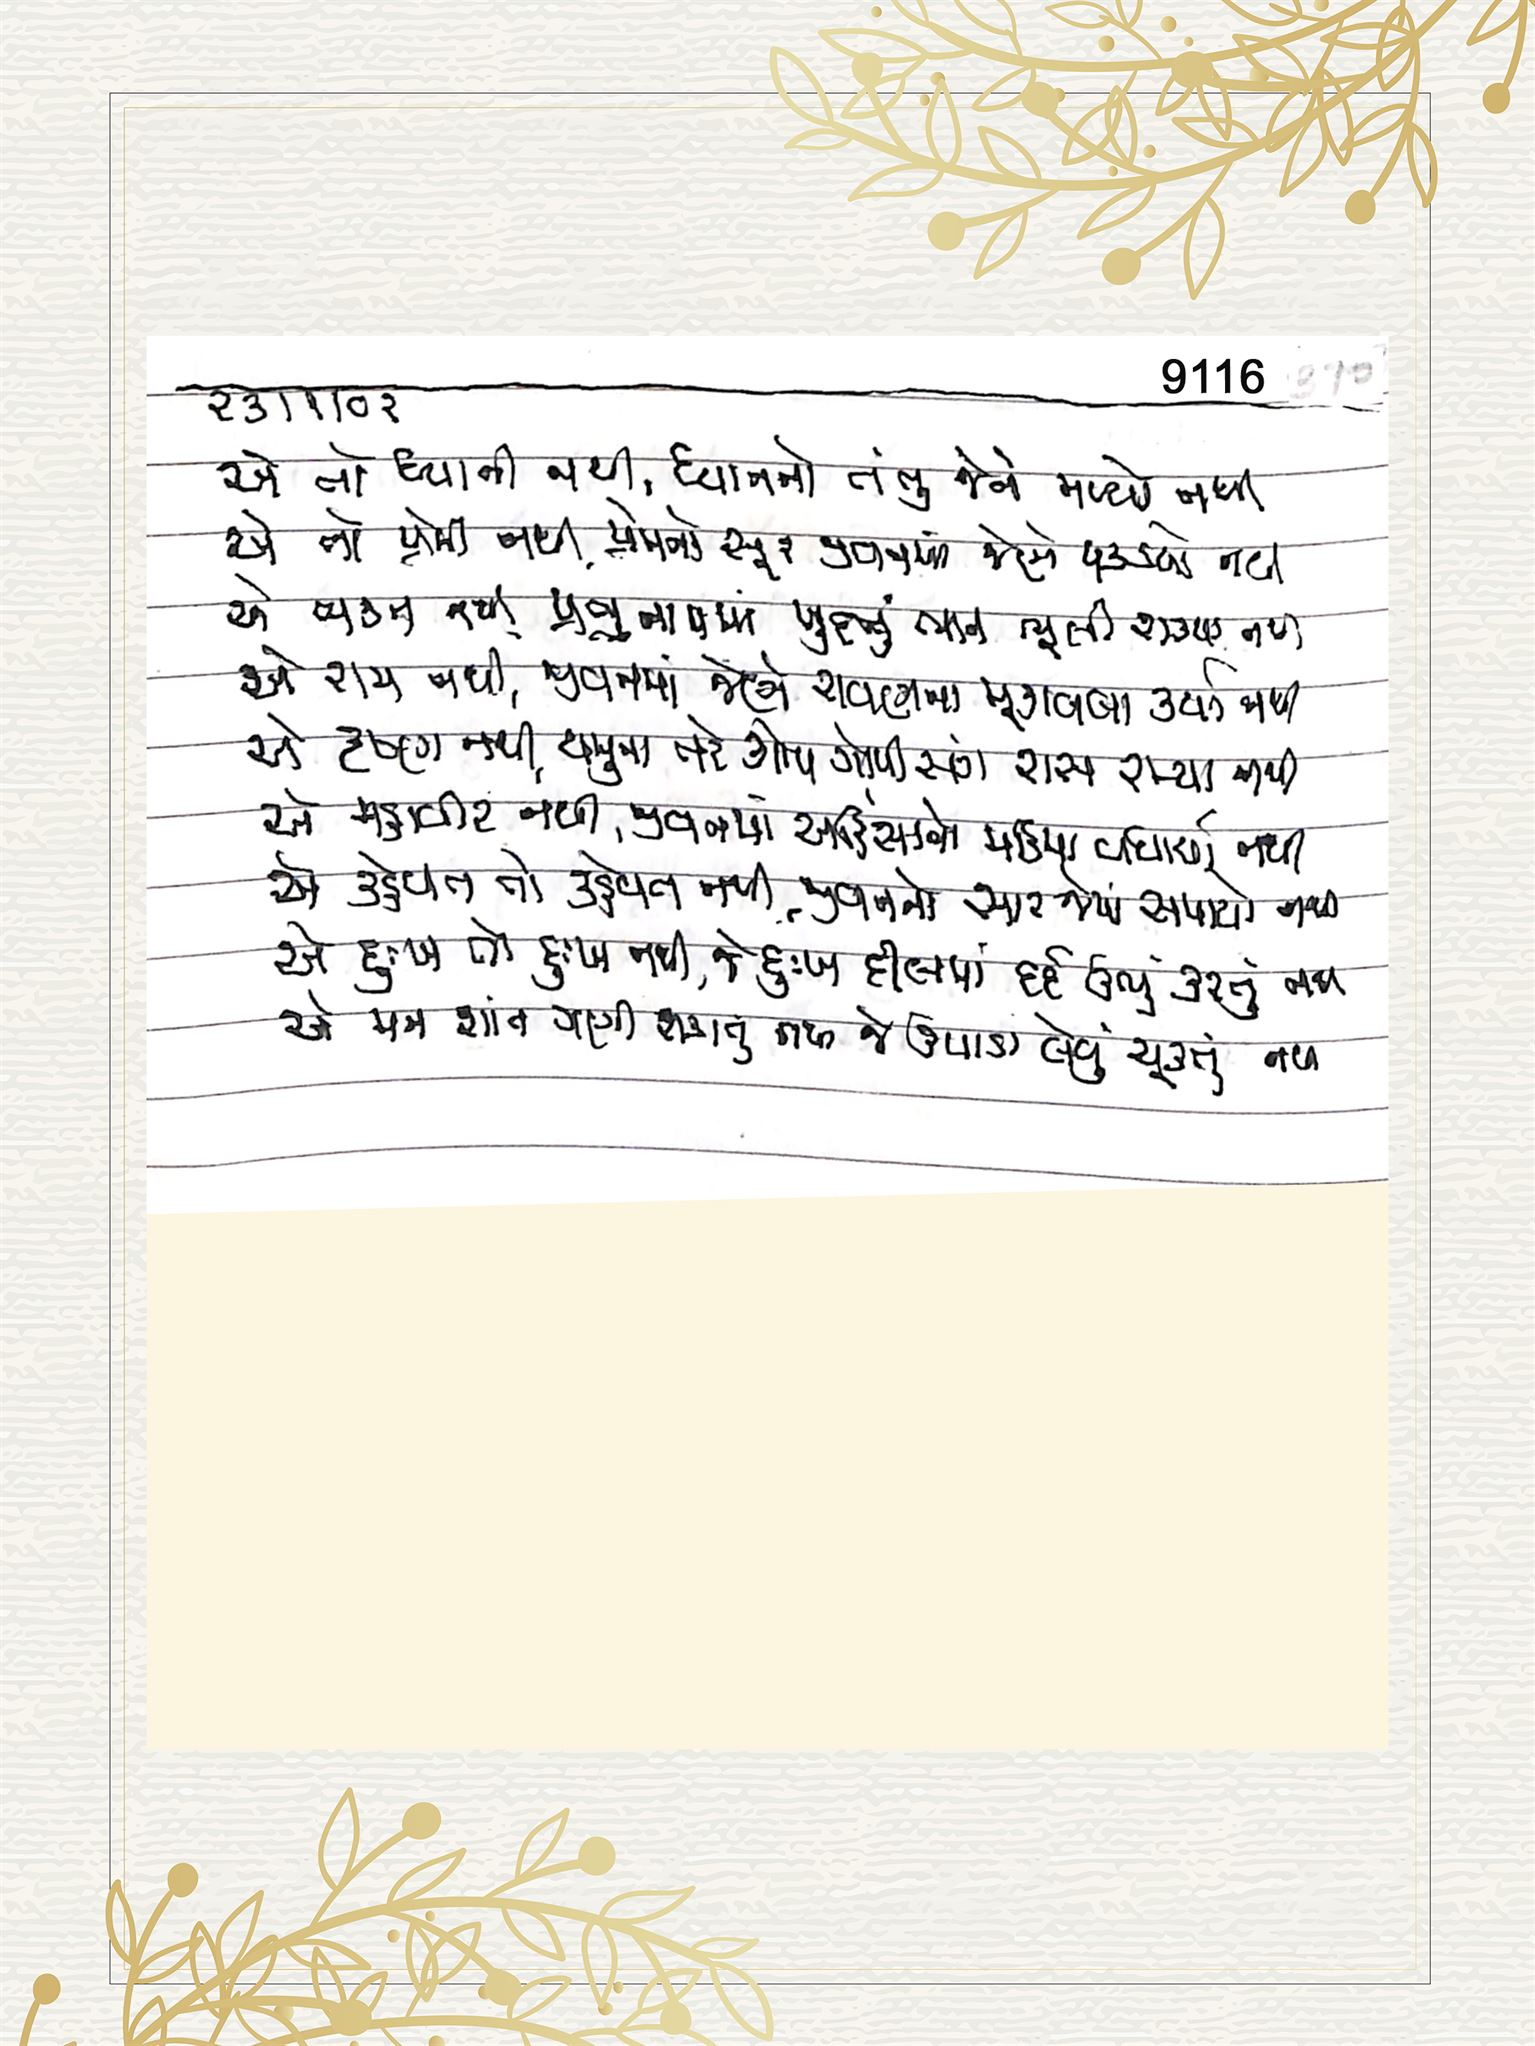 9116
૨૩।૧।૦૨
એ તો ધ્યાની નથી, ધ્યાનનો તંતુ જેને મળ્યો નથી
એ તો પ્રેમી નથી, પ્રેમનો સૂર જીવનમાં જેણે પકડયો નથી
એ ભક્ત નથી, પ્રભુ નામમાં ખુદનું ભાન ભૂલી શક્યા નથી
એ રામ નથી, જીવનમાં જેણે રાવણના મૂકાબલા કર્યા નથી
એ કૃષ્ણ નથી, યમુના તીરે ગોપ ગોપી સંગ રાસ રમ્યા નથી
એ મહાવીર નથી, જીવનમાં અહિંસાનો મહિમા વધાર્યો નથી
એ કહેવત તો કહેવત નથી, જીવનનો સાર જેમાં સમાયો નથી
એ દુઃખ તો દુઃખ નથી, જે દુઃખ દીલમાં દર્દ ઊભું કરતું નથી
એ મન શાંત ગણી શકાતું નથી જે ઉપાડા લેવું ચૂકતું નથી